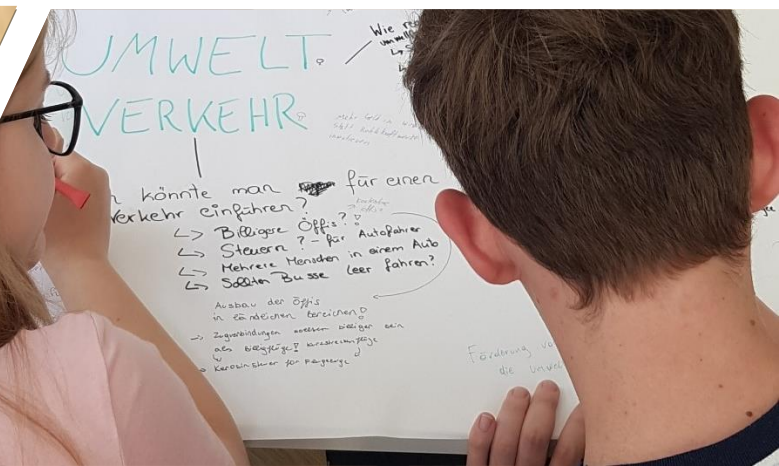 UMWELT
Wie
VERKEHR
könnte man für einen
Verkehr einführen?
↳ Billigere Öffis?!
↳ Steuern? - für Autofahrer
↳ Mehrere Menschen in einem Auto
↳ Sollten Busse leer fahren?
Ausbau der Öffis
in ländlichen Bereichen!
→ Zugverbindungen sollten billiger sein
als Billigflüge! Kurzstreckenflüge
Kerosinsteuer für Flugzeuge
Förderung
die